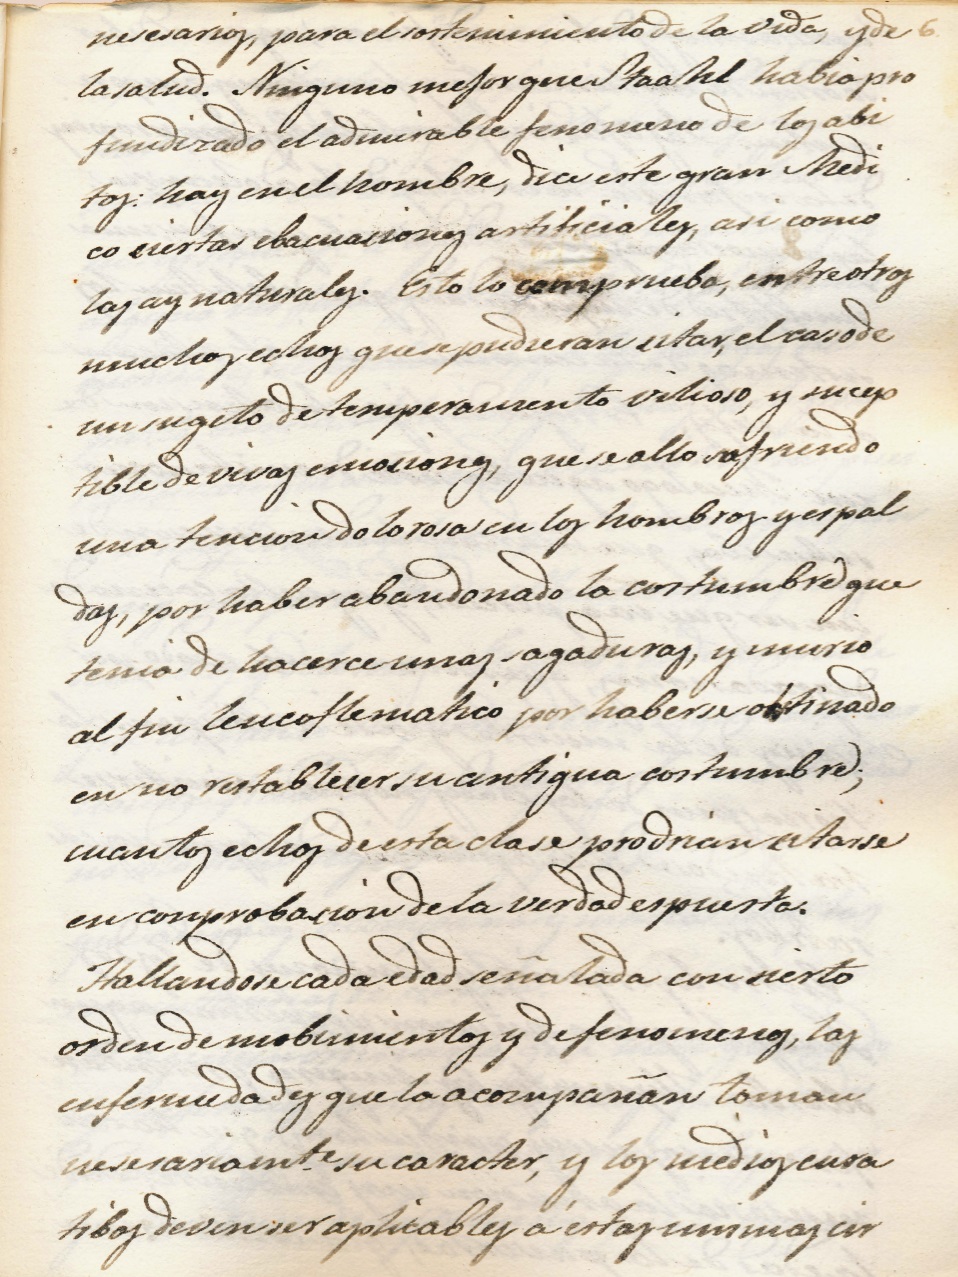 nesesarios, para el sortenimiento de la vida, y de 6
la salud. Ninguno mejor que Staahl habia pro
fundizado el admirable fenomeno de los abi
tos: hay en el hombre, dice este gran Medi
co ciertas ebacuaciones artificiales, asi como
las ay naturales. Esto lo comprueba, entre otros
muchos echos que se pudieran citar, el caso de
un sugeto de temperamento vilioso, y sucep
tible de vivas emociones, que se allo sufriendo
una tencion dolorosa en los hombros y espal
das, por haber abandonado la costumbre que
tenia de hacerce unas sagaduras, y murio
al fin leucoflematico por haberse obstinado
en no restablecer su antigua costumbre;
cuantos echos de esta clase prodrian citarse
en conprobacion de la verdad espuesta.
Hallandose cada edad señalada con cierto
orden de mobimientos y de fenomenos, las
enfermedades que la acompañan toman
nesesariamte. su caracter, y los medios cura
tibos deven ser aplicables á estas mismas cir